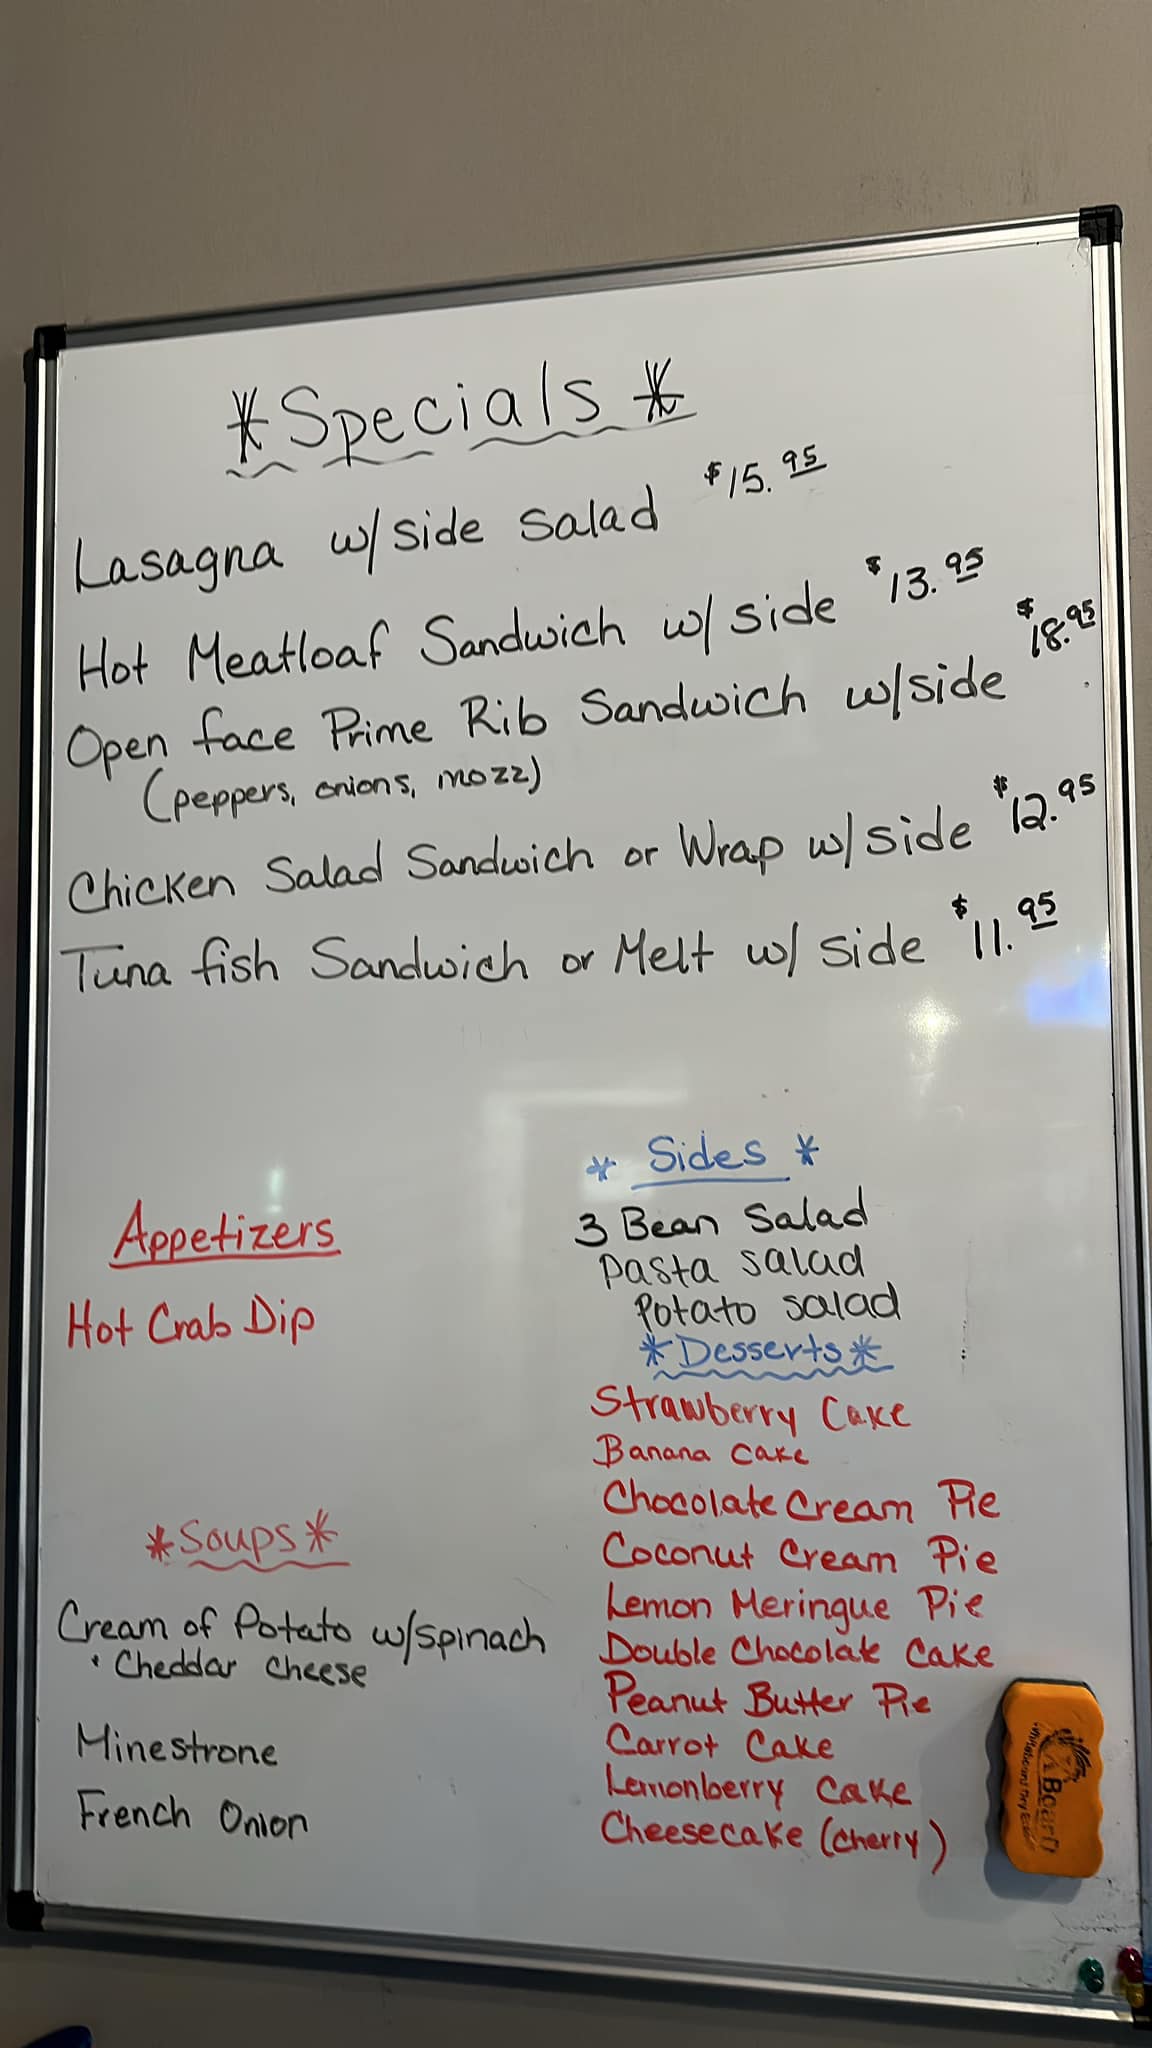 *Specials*
Lasagna w/side salad $15.95
Hot Meatloaf Sandwich w/ side $13.95
Open face Prime Rib Sandwich w/side $18.95
(peppers, onions, mozz)
Chicken Salad Sandwich or Wrap w/side $12.95
Tuna fish Sandwich or Melt w/ side $11.95
Appetizers
Hot Crab Dip
*Soups*
Cream of Potato w/spinach
• Cheddar cheese
Minestrone
French Onion
* Sides *
3 Bean Salad
Pasta salad
Potato salad
*Desserts*
Strawberry Cake
Banana Cake
Chocolate Cream Pie
Coconut Cream Pie
Lemon Meringue Pie
Double Chocolate Cake
Peanut Butter Pie
Carrot Cake
Lemonberry Cake
Cheesecake (cherry)